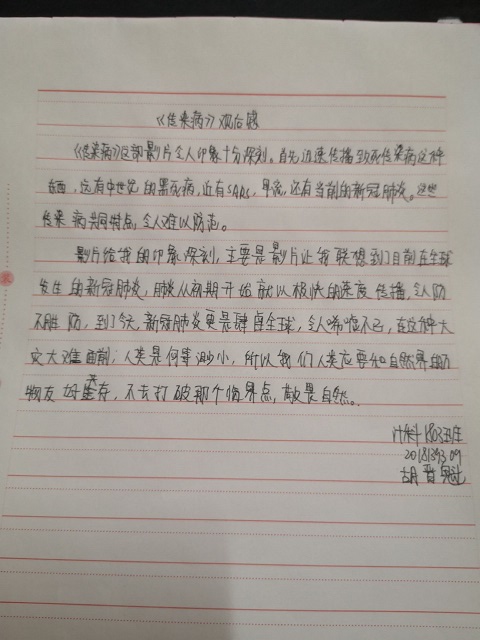 《传染病》观后感
《传染病》这部影片令人印象十分深刻。首先迅速传播致死传染病这种
东西，远有中世纪的黑死病，近有SARS，早流，还有当前的新冠肺炎。这些
传染病共同特点，令人难以防范。
影片给我的印象深刻，主要是影片让我联想到了目前在全球
发生的新冠肺炎，肺炎从初期开始就以极快的速度传播，令人防
不胜防，到了今天，新冠肺炎更是肆虐全球，令人唏嘘不已，在这种大
灾大难面前，人类是何等渺小，所以我们人类应要和自然界的
物友好共存，不去打破那个临界点，敬畏自然。
计科1803班
2018139309
胡晋魁